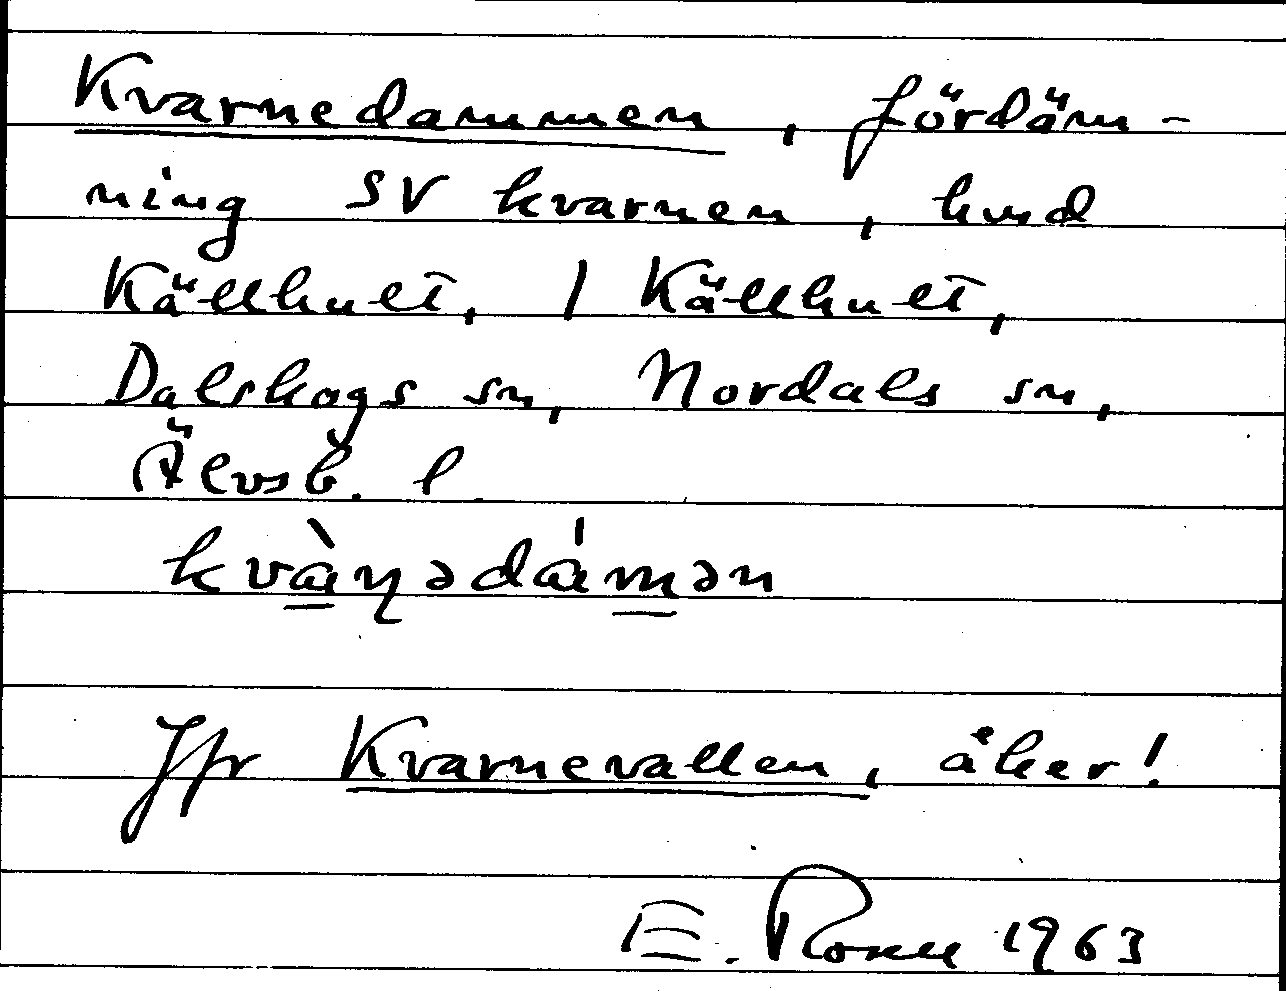 Kvarnedammen, fördäm-
ning SV kvarnen, hmd
Källhult, 1 Källhult,
Dalskogs sn, Nordals sn,
Älvsb. l.
kvàɳədámən
Jfr Kvarnevallen, åker!
E. 1963